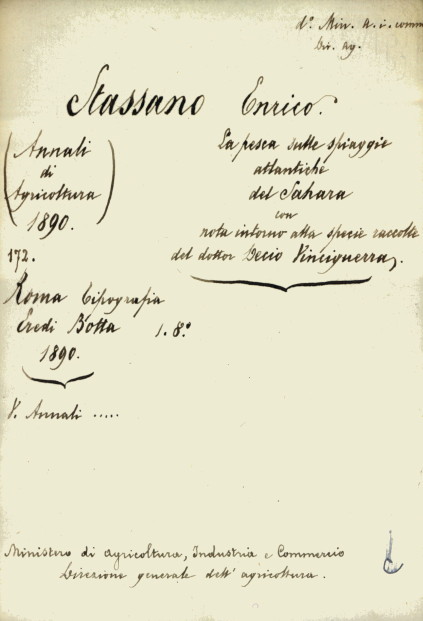 d.º Min. A. i. comm
Dir. Ag.
Stassano Enrico.
(Annali
di
Agricoltura
1890.)
172.
La pesca sulle spiaggie
atlantiche
del Sahara
con
nota intorno alla specie raccolte
del dottor Decio Vinciguerra.
Roma Tipografia
Eredi Botta 1. 8.º
1890.
V. Annali .....
Ministero di agricoltura, Industria e Commercio
Direzione generale dell' agricoltura.